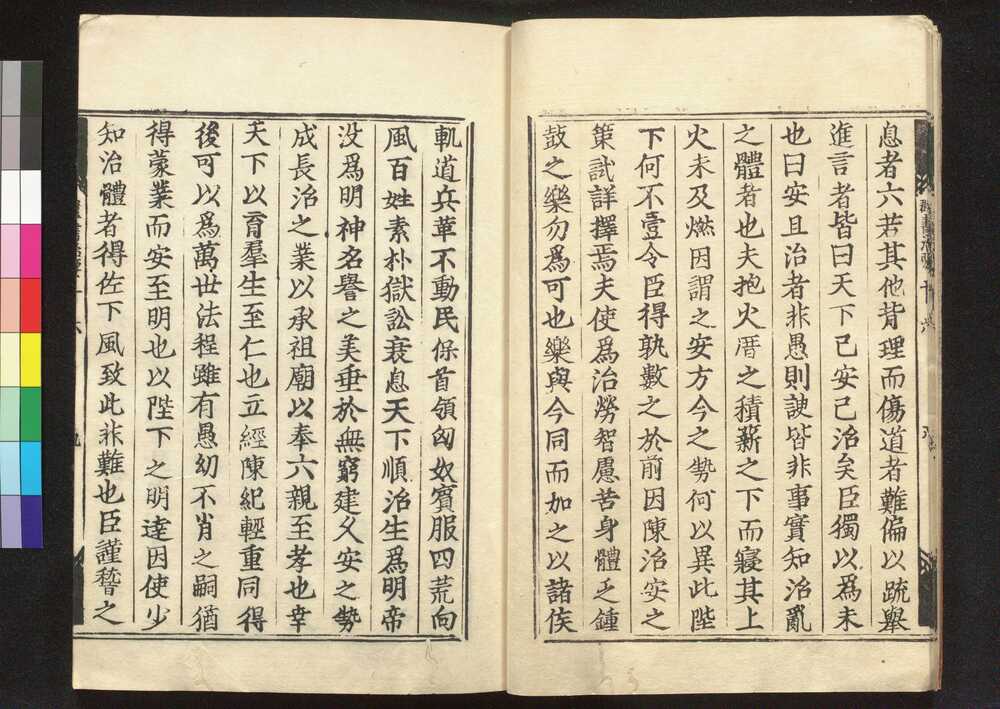 息者六若其他背理而傷道者難偏以疏舉
進言者皆曰天下已安已治矣臣獨以爲未
也曰安且治者非愚則諛皆非事實知治亂
之體者也夫抱火厝之積薪之下而寢其上
火未及燃因謂之安方今之勢何以異此陛
下何不壹令臣得孰數之於前因陳治安之
策試詳擇焉夫使爲治勞智慮苦身體乏鍾
鼓之樂勿爲可也樂與今同而加之以諸侯
軌道兵革不動民保首領匈奴賓服四荒向
風百姓素朴獄訟衰息天下順治生爲明帝
没爲明神名譽之美垂於無窮建久安之勢
成長治之業以承祖廟以奉六親至孝也幸
天下以育羣生至仁也立經陳紀輕重同得
後可以爲萬世法程雖有愚幼不肖之嗣猶
得蒙業而安至明也以陛下之明達因使少
知治體者得佐下風致此非難也臣謹稽之